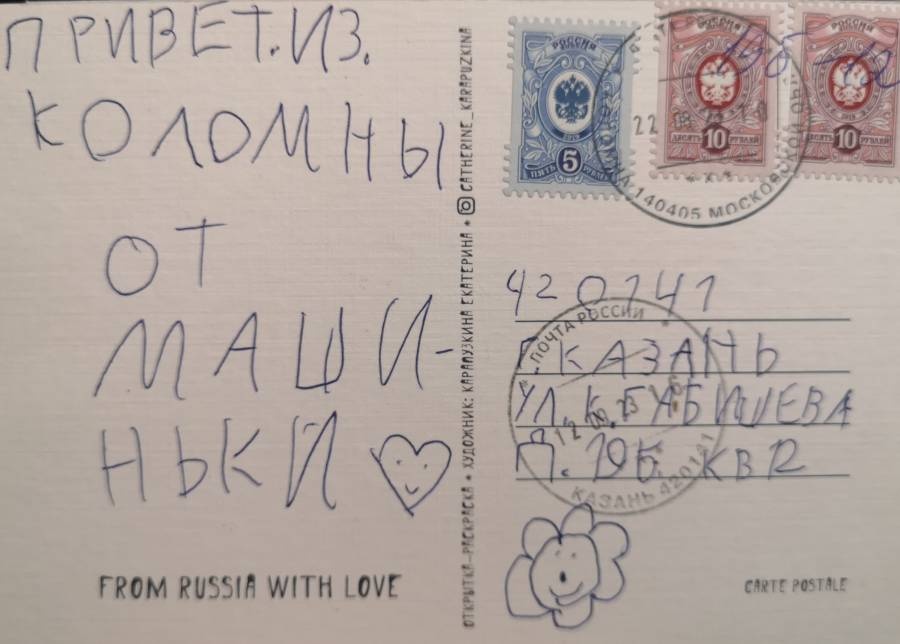 ПРИВЕТ.ИЗ.
КОЛОМНЫ
ОТ
МАШИ-
НЬКИ
FROM RUSSIA WITH LOVE
ОТКРЫТКА-РАСКРАСКА • ХУДОЖНИК: КАРАПУЗКИНА ЕКАТЕРИНА • CATHERINE_KARAPUZKINA
РОССИЯ
5
ПЯТЬ РУБЛЕЙ
РОССИЯ
10
ДЕСЯТЬ РУБЛЕЙ
10
ДЕСЯТЬ РУБЛЕЙ
140405 МОСКОВСКОЙ
420141
Г.КАЗАНЬ
УЛ.К.ГАБИШЕВА
Д. 19Б КВ
ПОЧТА РОССИИ
12 09.23
КАЗАНЬ 420141
CARTE POSTALE